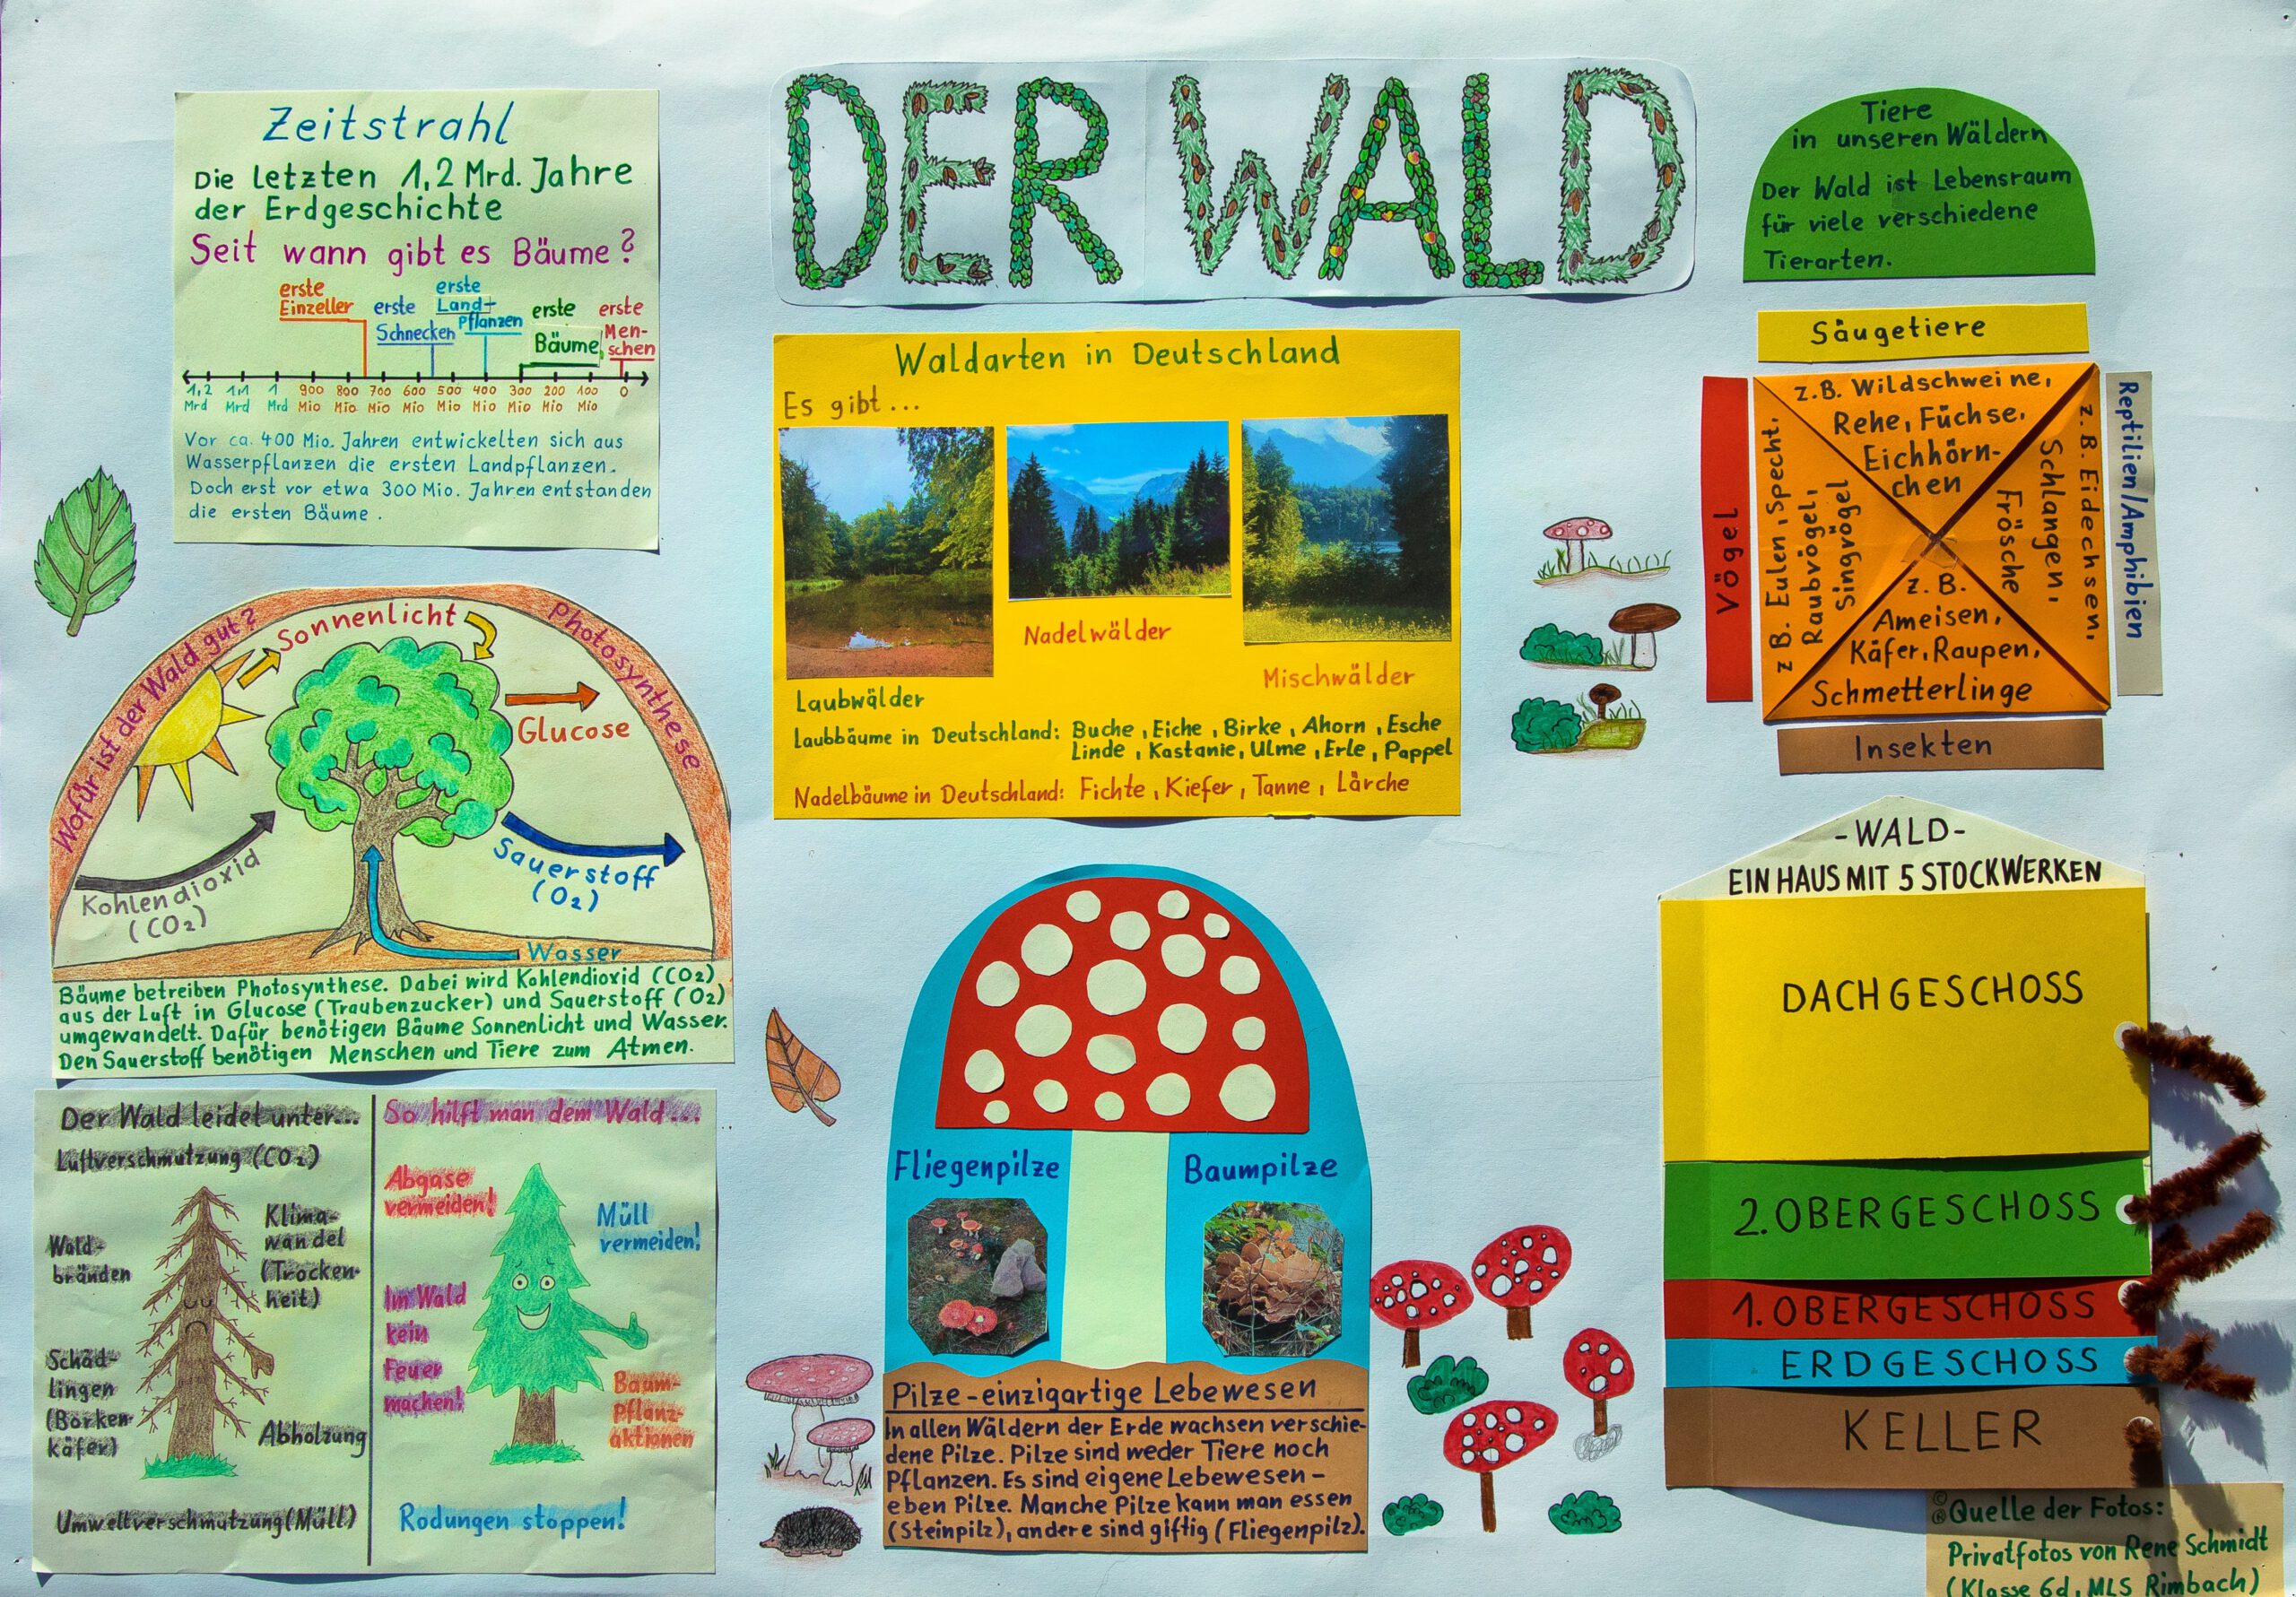 DER WALD
Zeitstrahl
Die letzten 1,2 Mrd. Jahre
der Erdgeschichte
Seit wann gibt es Bäume?
erste
Einzeller
erste
Schnecken
erste
Land-
Pflanzen
erste
Bäume
erste
Men-
schen
1,2 1,1 1 900 800 700 600 500 400 300 200 100 0
Mrd Mrd Mrd Mio Mio Mio Mio Mio Mio Mio Mio Mio
Vor ca. 400 Mio. Jahren entwickelten sich aus
Wasserpflanzen die ersten Landpflanzen.
Doch erst vor etwa 300 Mio. Jahren entstanden
die ersten Bäume.
Wofür ist der Wald gut?
Photosynthese
Sonnenlicht
Glucose
Kohlendioxid
(CO2)
Sauerstoff
(O2)
Wasser
Bäume betreiben Photosynthese. Dabei wird Kohlendioxid (CO2)
aus der Luft in Glucose (Traubenzucker) und Sauerstoff (O2)
umgewandelt. Dafür benötigen Bäume Sonnenlicht und Wasser.
Den Sauerstoff benötigen Menschen und Tiere zum Atmen.
Der Wald leidet unter...
Luftverschmutzung (CO2)
Wald-
bränden
Klima-
wandel
(Trocken-
heit)
Schäd-
lingen
(Borken-
käfer)
Abholzung
Umweltverschmutzung (Müll)
So hilft man dem Wald...
Abgase
vermeiden!
Müll
vermeiden!
Im Wald
kein
Feuer
machen!
Baum-
Pflanz-
aktionen
Rodungen stoppen!
Waldarten in Deutschland
Es gibt...
Laubwälder
Nadelwälder
Mischwälder
Laubbäume in Deutschland: Buche, Eiche, Birke, Ahorn, Esche
Linde, Kastanie, Ulme, Erle, Pappel
Nadelbäume in Deutschland: Fichte, Kiefer, Tanne, Lärche
Fliegenpilze
Baumpilze
Pilze - einzigartige Lebewesen
In allen Wäldern der Erde wachsen verschie-
dene Pilze. Pilze sind weder Tiere noch
Pflanzen. Es sind eigene Lebewesen -
eben Pilze. Manche Pilze kann man essen
(Steinpilz), andere sind giftig (Fliegenpilz).
Tiere
in unseren Wäldern
Der Wald ist Lebensraum
für viele verschiedene
Tierarten.
Säugetiere
z.B. Wildschweine,
Rehe, Füchse,
Eichhörn-
chen
Vögel
z.B. Eulen, Specht,
Raubvögel,
Singvögel
Reptilien/Amphibien
z.B. Eidechsen,
Schlangen,
Frösche
z.B.
Ameisen,
Käfer, Raupen,
Schmetterlinge
Insekten
-WALD-
EIN HAUS MIT 5 STOCKWERKEN
DACHGESCHOSS
2. OBERGESCHOSS
1. OBERGESCHOSS
ERDGESCHOSS
KELLER
©
® Quelle der Fotos:
Privatfotos von Rene Schmidt
(Klasse 6d, MLS Rimbach)